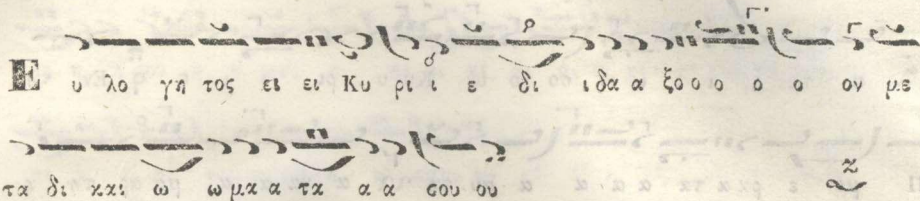 Ε υ λο γη τος ει ει Κυ ρι ι ε δι ι δα α ξο ο ο ο ο ο ον με
τα δι και ω ω μα α τα α α σου ου